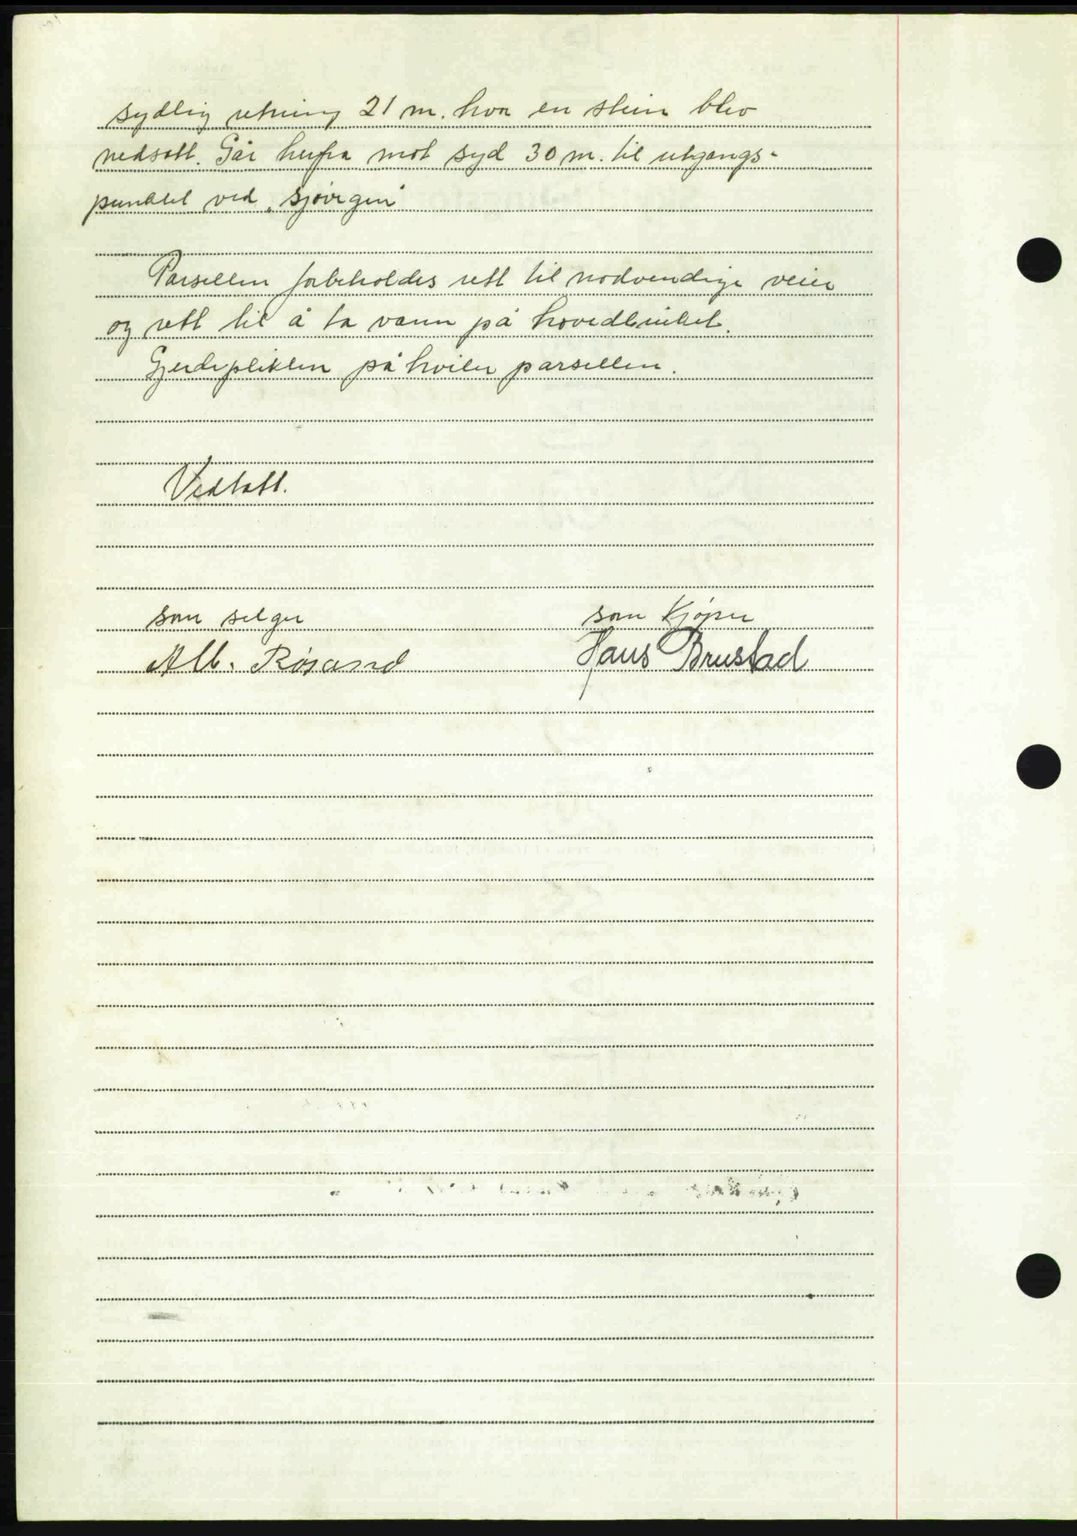 sydlig retning 21 m. hvor en sten blev
nedsatt. Går herfra mot syd 30 m. til utgangs-
punktet ved „Sjøvegen"
Parsellen forbeholdes rett til nødvendige veier
og rett til å ta vann på hovedbruket.
Gjerdeplikten på hviler parsellen.
Vedtatt.
som selger
som kjøper
Alb. Røsand
Hans Brustad